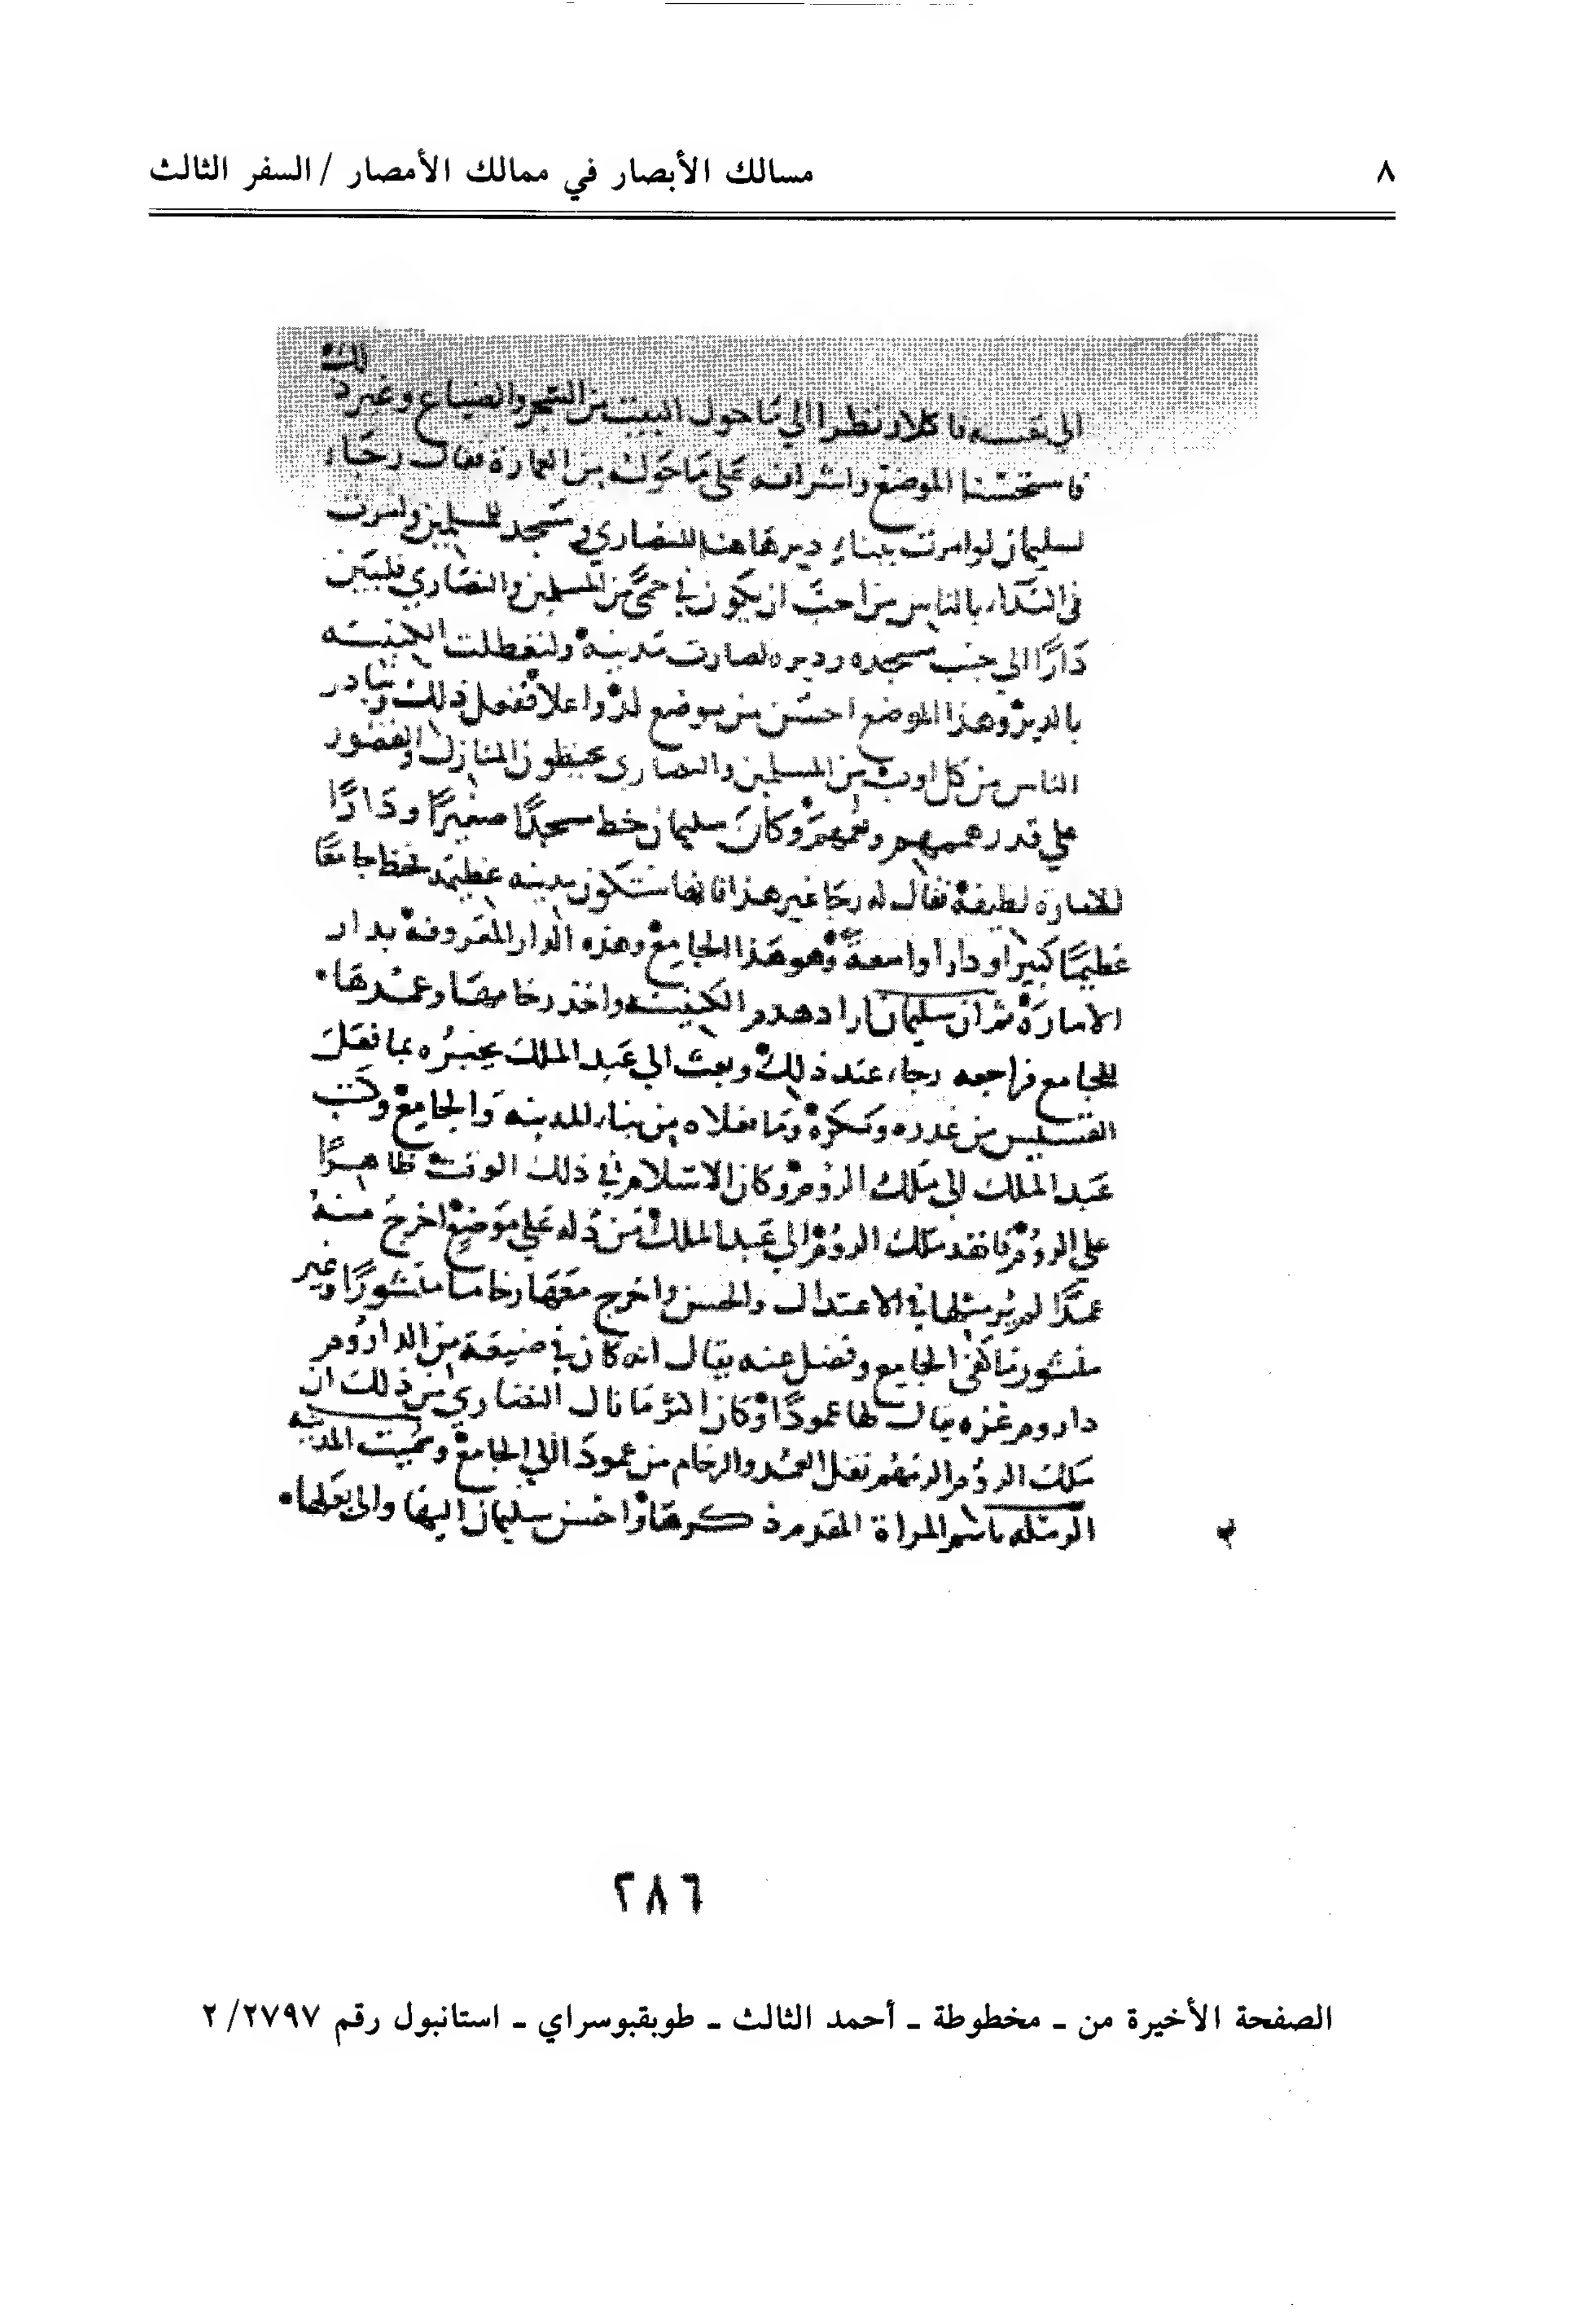 ٨ مسالك الأبصار في ممالك الأمصار / السفر الثالث
لك
الي نفسه فاكلا ونظرا الي ما حول البيت من الشجر والضياع وغير ذ
فاستحسنا الموضع واشرافه على ما حوله من العمارة فقال رجاء
لسليمان لو امرت ببناء دير هاهنا للنصاري ومسجد للمسلمين وامرت
في النداء بالناس من احب ان يكون في حمى من المسلمين والنصاري فليبن
دارا الي جنب مسجده وديره لصارت مدينة ولتعطلت الكنيسه
بالدير وهذا الموضع احسن من موضع لد واعلا ففعل ذلك وتبادر
الناس من كل اوب من المسلمين والنصارى يختطون المنازل والقصور
علي قدر هممهم ونعمهم وكان سليمان خط مسجدا صغيرا ودارا
للامارة لطيفة فقال له رجا غير هذا فانها ستكون مدينه عظيمة فخط جامعا
عظيما كبيرا ودارا واسعة وهو هذا الجامع وهذه الدار المعروفة بدار
الامارة ثم ان سليمان اراد هدم الكنيسه واخذ رخامها وعمدها
للجامع فراجعه رجاء عند ذلك وبعث الي عبد الملك يخبره بما فعل
القسيس من غدره ومكره وما فعلاه من بناء المدينه والجامع وكتب
عبد الملك الى ملك الروم وكان الاسلام في ذلك الوقت ظاهرا
على الروم فانفد ملك الروم الي عبد الملك من دله علي موضع اخرج منه
عمدا لم ير مثلها في الاعتدال والحسن واخرج معها رخاما منشورا وغير
منشور ما كفى الجامع وفضل عنه يقال انه كان في ضيعة من الداروم
داروم غزه يقال لها عمودا وكان اكثر ما نال النصاري من ذلك ان
ملك الروم الزمهم نقل العمد والرخام من عمودا الي الجامع وسميت المدينه
الرمله باسم المراة المقدم ذكرها واحسن سليمان اليها والى بعلها
٢٨٦
الصفحة الأخيرة من ـ مخطوطة ـ أحمد الثالث ـ طوبقبوسراي ـ استانبول رقم ٢/٢٧٩٧